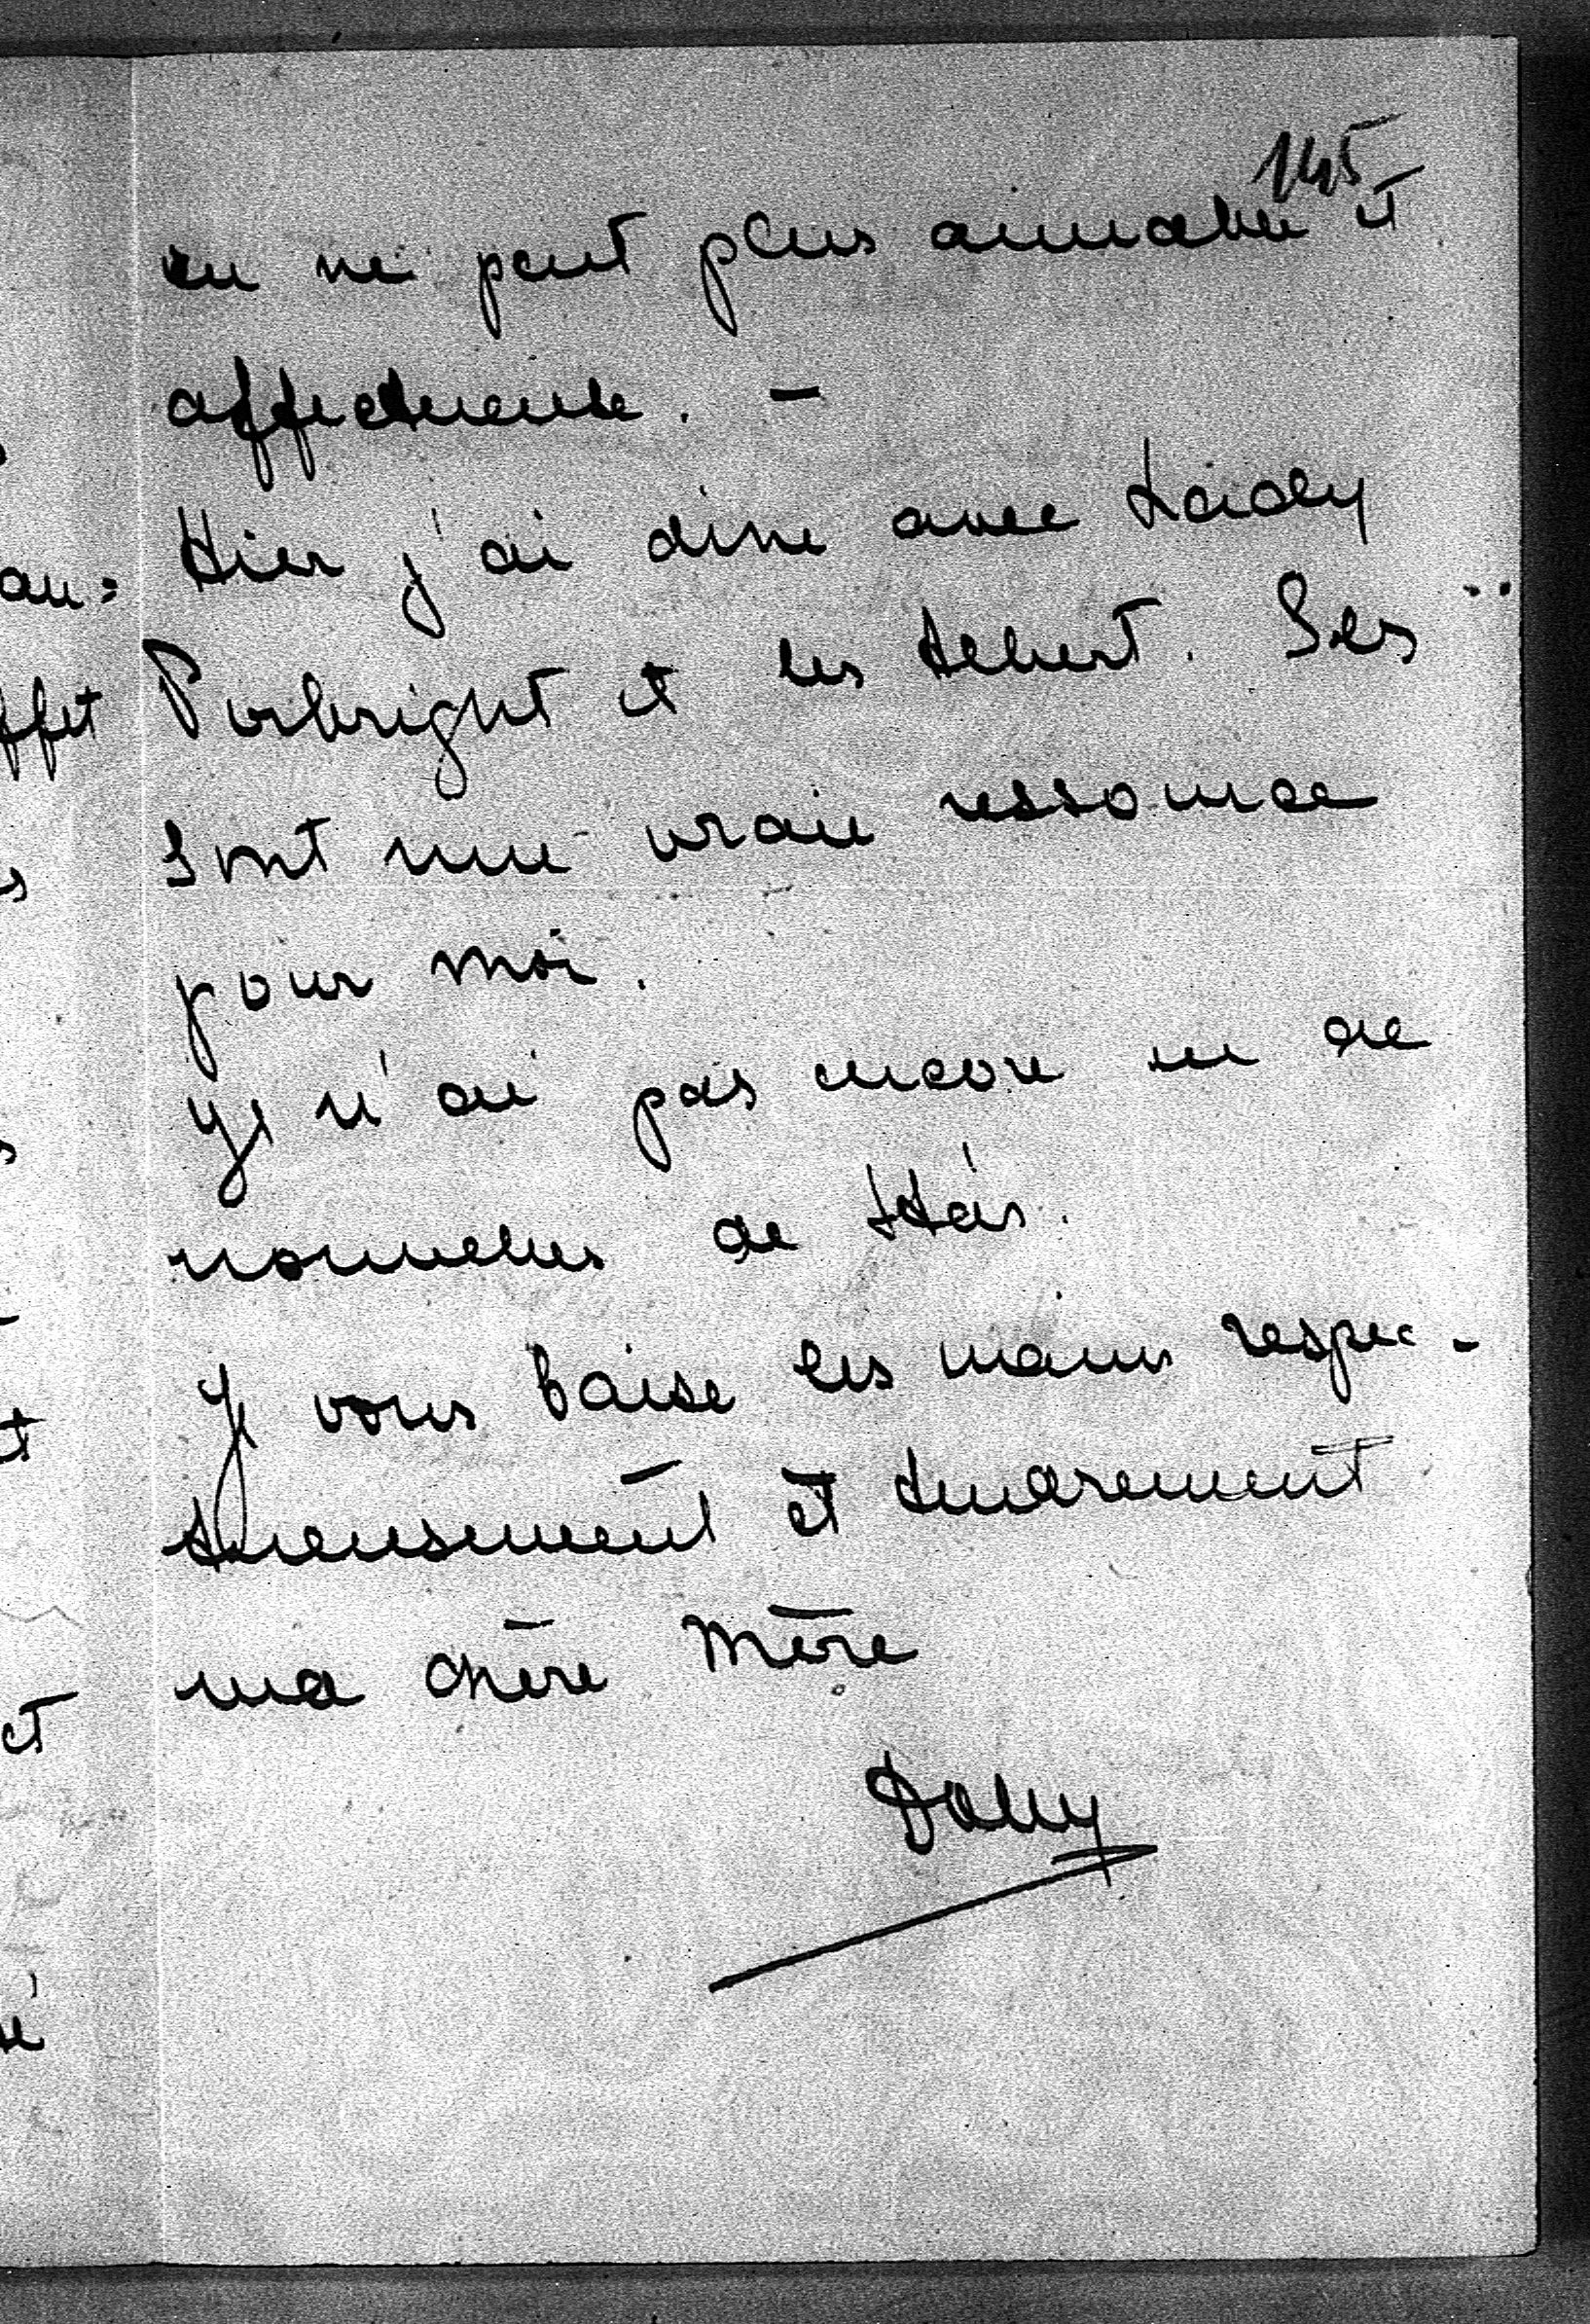 145
on ne peut plus aimable et
affectueuse. -
Hier j'ai dîné avec Lady
Pirbright et les Ses
sont une vraie ressource
pour moi.
Je n'ai pas encore eu de
nouvelles de
Je vous baise les mains respec-
tueusement et tendrement
ma chère Mère
Dolly